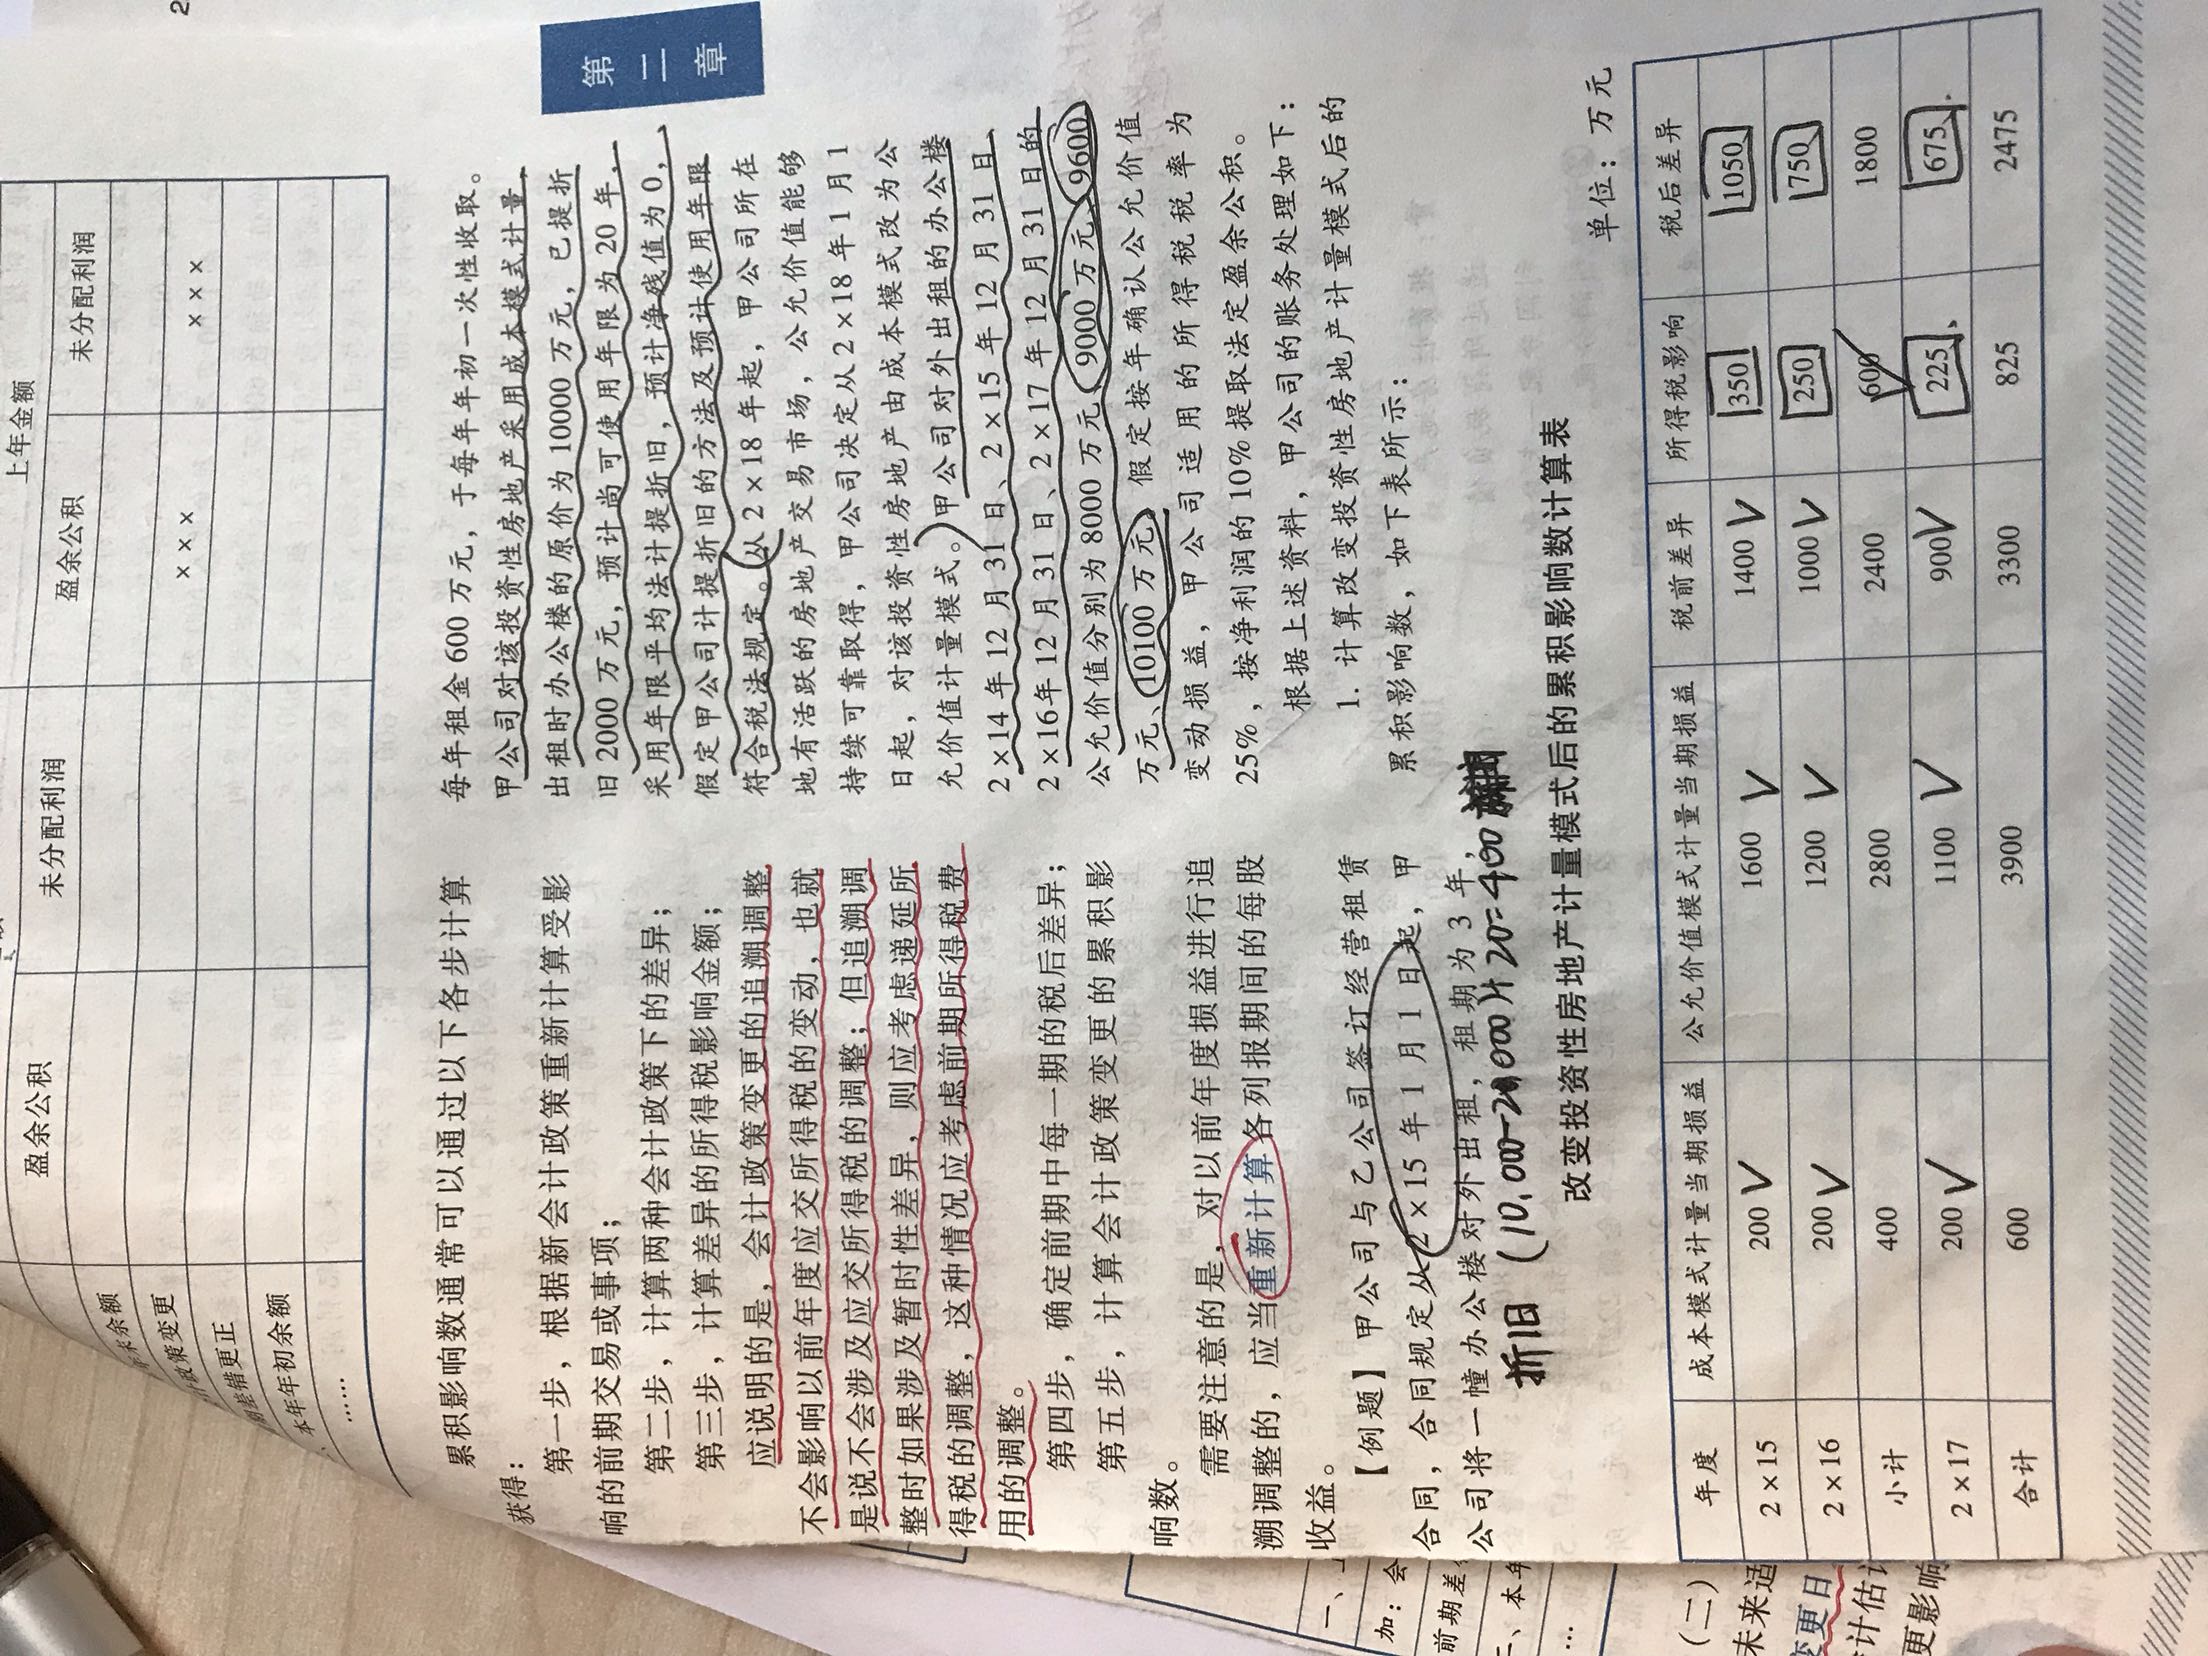 2
上年金额
盈余公积
未分配利润
盈余公积
未分配利润
××× ×××
年末余额
计政策变更
期差错更正
、本年年初余额
……
第二章
累积影响数通常可以通过以下各步计算
获得：
第一步，根据新会计政策重新计算受影
响的前期交易或事项；
第二步，计算两种会计政策下的差异；
第三步，计算差异的所得税影响金额；
应说明的是，会计政策变更的追溯调整
不会影响以前年度应交所得税的变动，也就
是说不会涉及应交所得税的调整；但追溯调
整时如果涉及暂时性差异，则应考虑递延所
得税的调整，这种情况应考虑前期所得税费
用的调整。
第四步，确定前期中每一期的税后差异；
第五步，计算会计政策变更的累积影
响数。
需要注意的是，对以前年度损益进行追
溯调整的，应当重新计算各列报期间的每股
收益。
【例题】甲公司与乙公司签订经营租赁
合同，合同规定从2×15年1月1日起，甲
公司将一幢办公楼对外出租，租期为3年，
每年租金600万元，于每年年初一次性收取。
甲公司对该投资性房地产采用成本模式计量，
出租时办公楼的原价为10000万元，已提折
旧2000万元，预计尚可使用年限为20年，
采用年限平均法计提折旧，预计净残值为0，
假定甲公司计提折旧的方法及预计使用年限
符合税法规定。从2×18年起，甲公司所在
地有活跃的房地产交易市场，公允价值能够
持续可靠取得，甲公司决定从2×18年1月1
日起，对该投资性房地产由成本模式改为公
允价值计量模式。甲公司对外出租的办公楼
2×14年12月31日、2×15年12月31日
2×16年12月31日、2×17年12月31日的
公允价值分别为8000万元、9000万元、9600
万元、10100万元。假定按年确认公允价值
变动损益，甲公司适用的所得税税率为
25%，按净利润的10%提取法定盈余公积。
根据上述资料，甲公司的账务处理如下：
1. 计算改变投资性房地产计量模式后的
累积影响数，如下表所示：
折旧 (10,000-2,000)÷20=400
改变投资性房地产计量模式后的累积影响数计算表
单位：万元
年度 成本模式计量当期损益 公允价值模式计量当期损益 税前差异 所得税影响 税后差异
2×15 200√ 1600√ 1400√ 350 1050
2×16 200√ 1200√ 1000√ 250 750
小计 400 2800 2400 600 1800
2×17 200√ 1100√ 900√ 225 675
合计 600 3900 3300 825 2475
加：会
前期差
二、本年
…
（二）
未来适
变更日
计估计
更影响